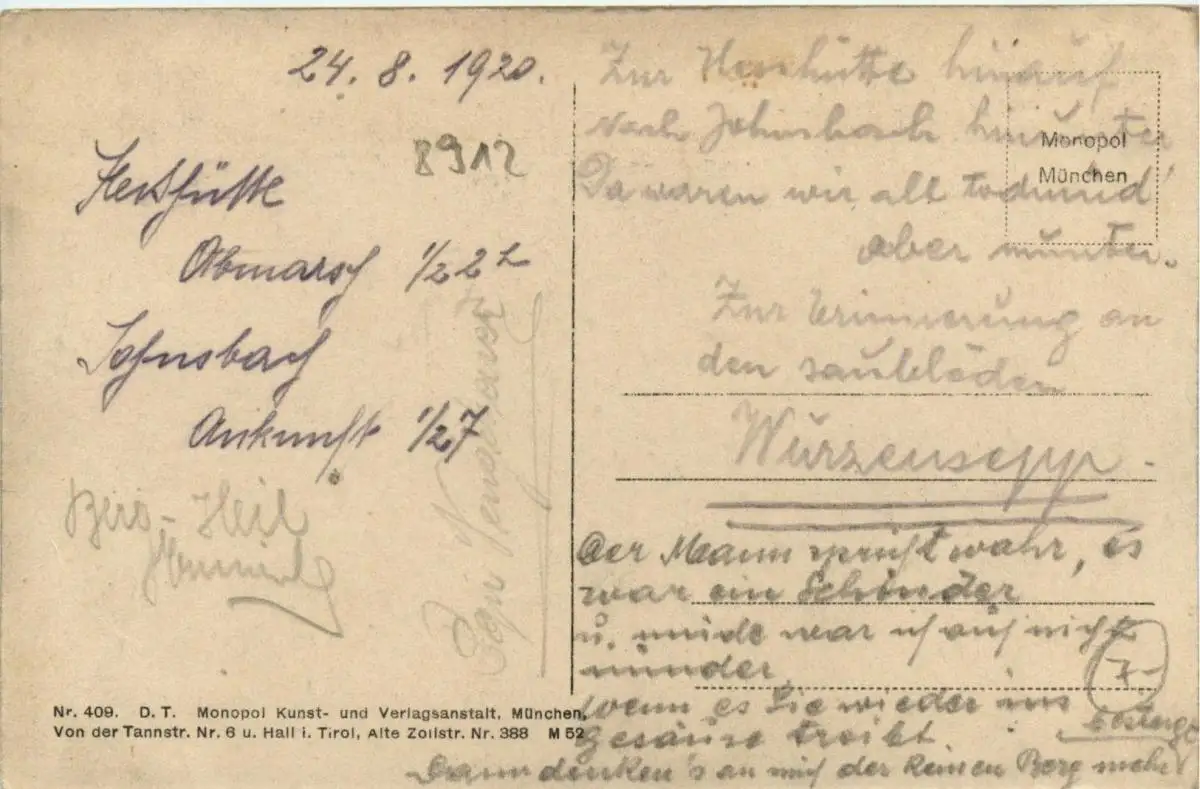 24. 8. 1920.
8912
Hesshütte
Abmarsch 1/2 2 h
Johnsbach
Ankunft 1/2 7
Berg-Heil
Zur Hesshütte hinauf
nach Johnsbach hinunter
Da waren wir all todmüd'
aber munter.
Zur Erinnerung an
den saublöden
Wurzensepp -
Der Mann spricht wahr, es
war ein Schinder
u. müde war ich auch nicht
minder
Wenn es Sie wieder ins
Gesäuse treibt.
Dann denken's an mich der keinen Berg mehr
besteigt
7-
Monopol
München
Nr. 409. D. T. Monopol Kunst- und Verlagsanstalt, München,
Von der Tannstr. Nr. 6 u. Hall i. Tirol, Alte Zollstr. Nr. 388 M 52